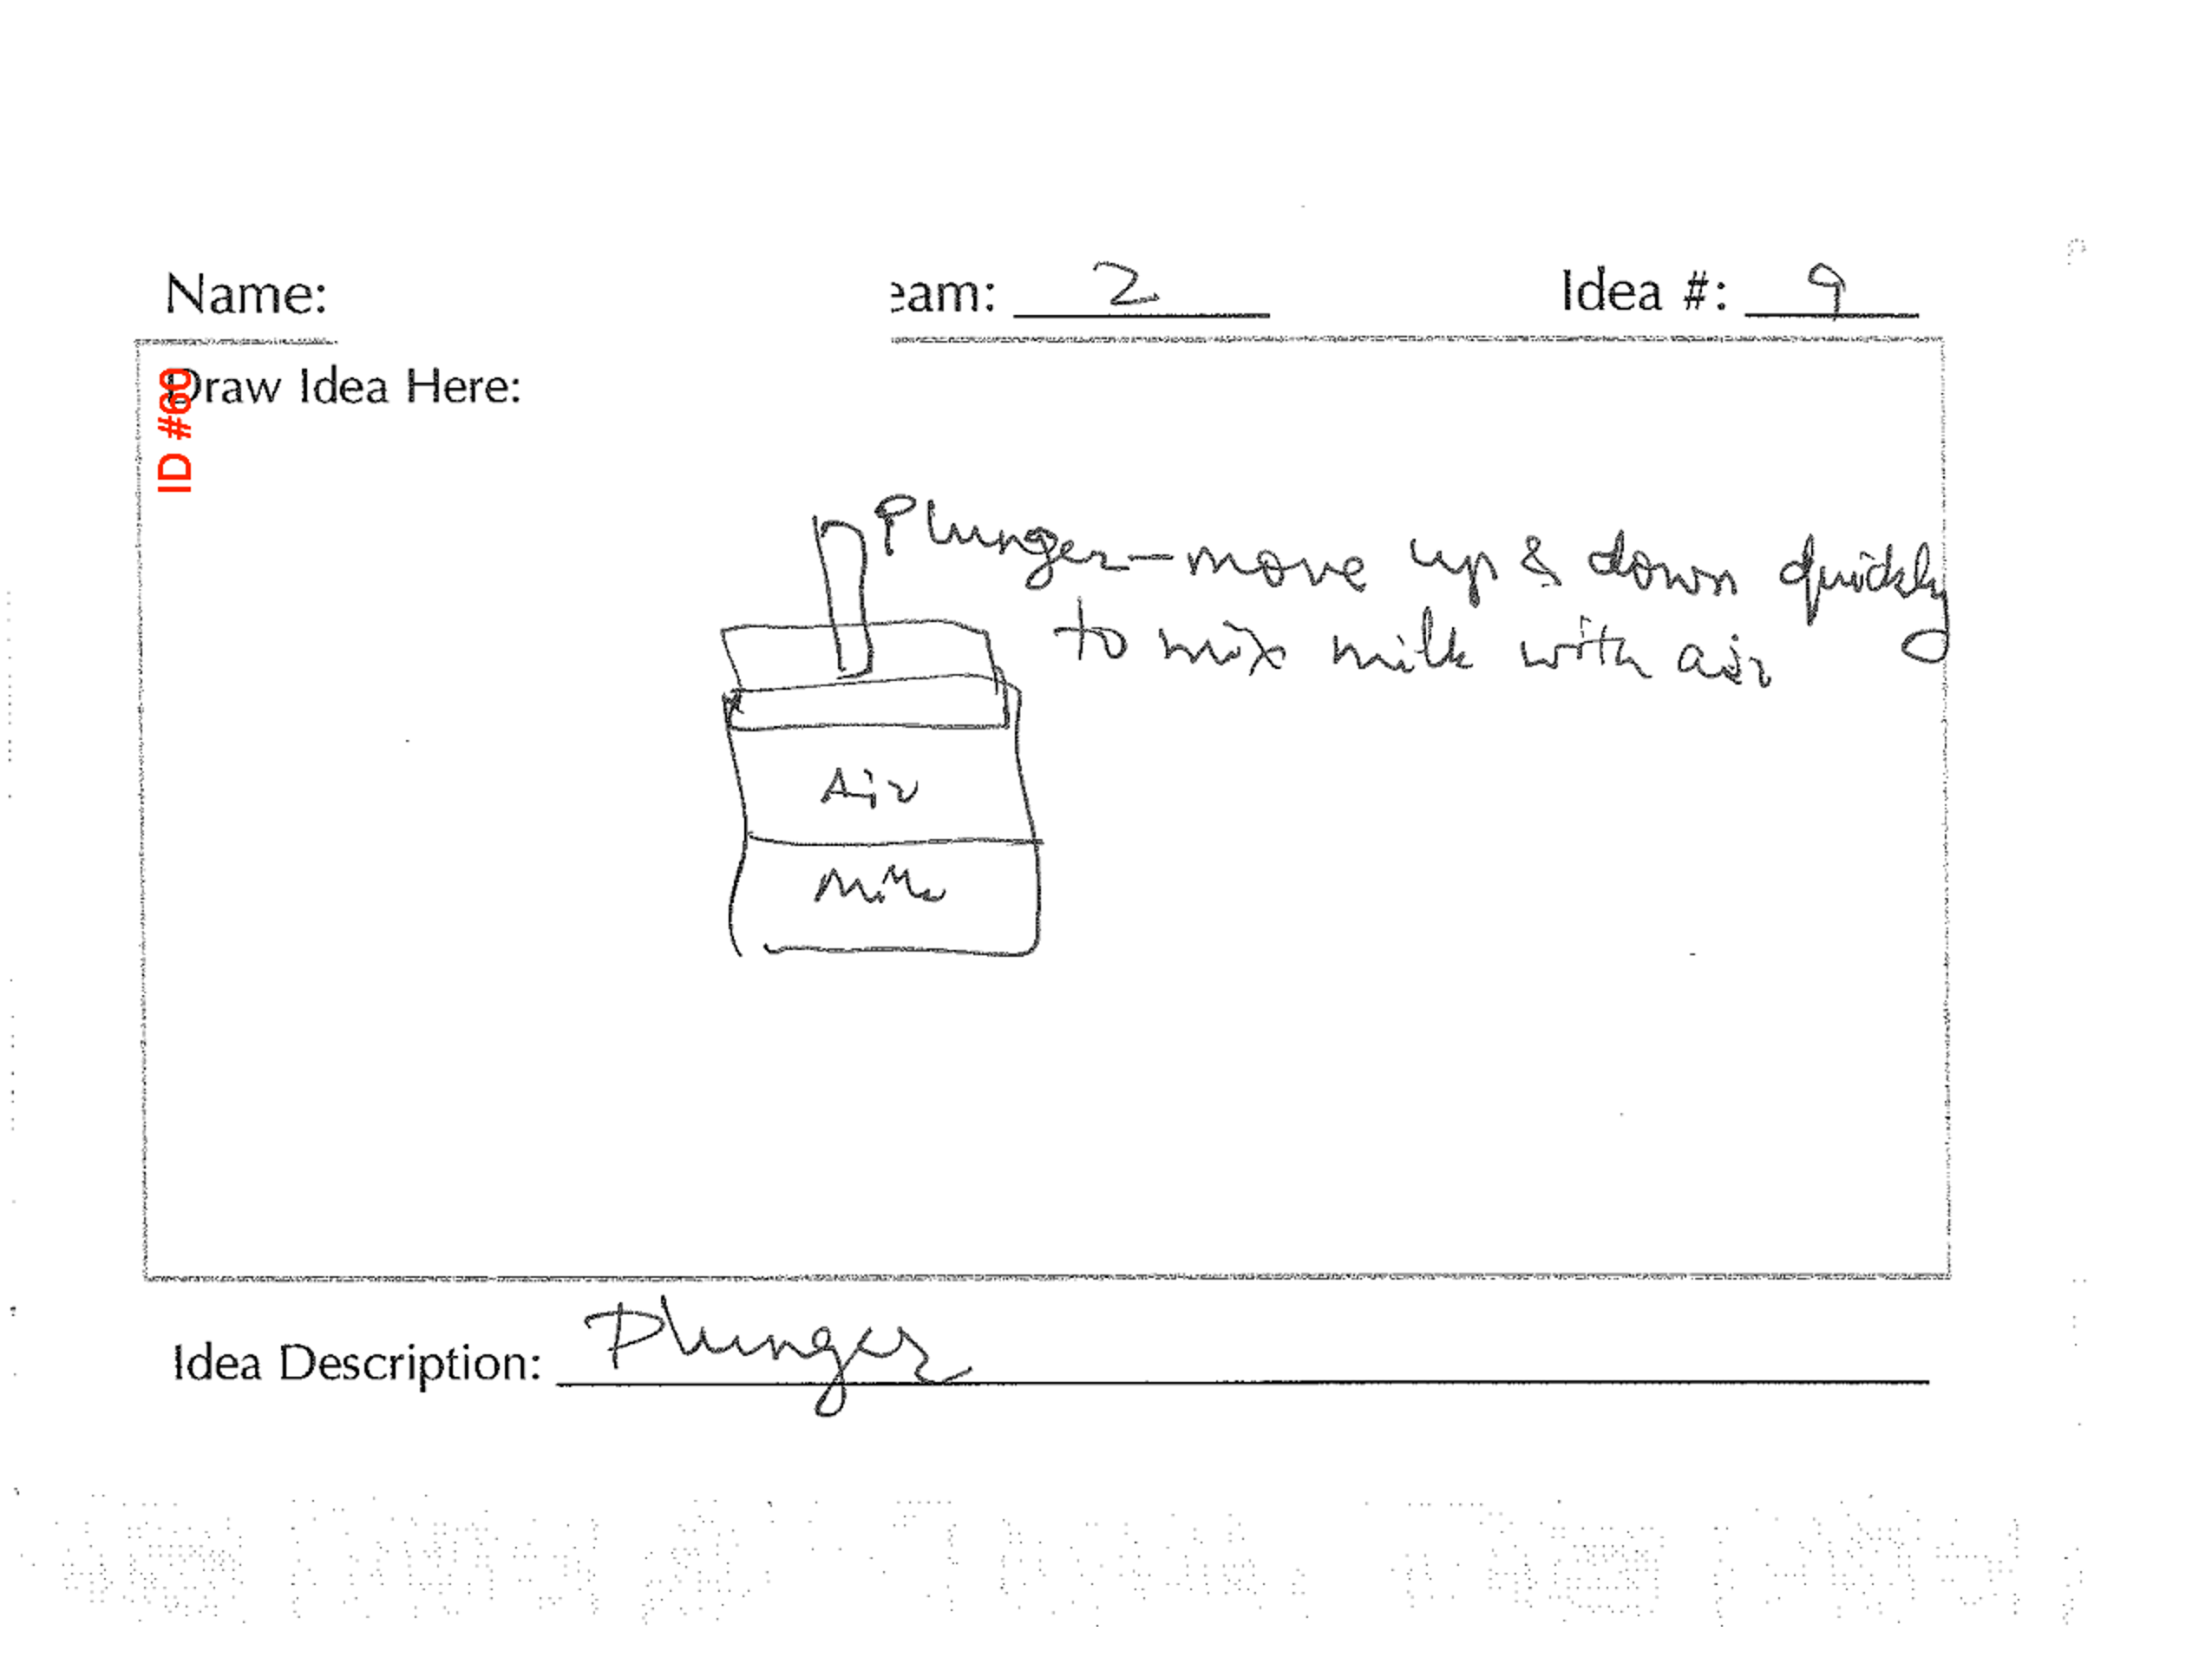 Name:
eam: 2
Idea #: 9
Draw Idea Here:
ID #60
Plunger—move up & down quickly
to mix milk with air
Air
Milk
Idea Description: Plunger